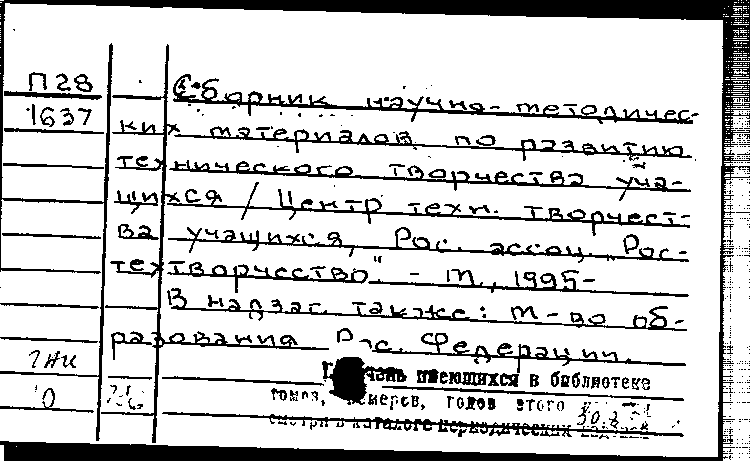 П28
1637
Сборник научно-методичес-
ких материалов по развитию
технического творчества уча-
щихся / Центр техн. творчест-
ва учащихся, Рос. ассоц. „Рос-
техтворчество". - М., 1995-
В надзаг. также: М-во об-
разования Рос. Федерации.
1жи
0
имеющихся в библиотеке
томов, номеров, годов этого
смотри в каталоге периодических